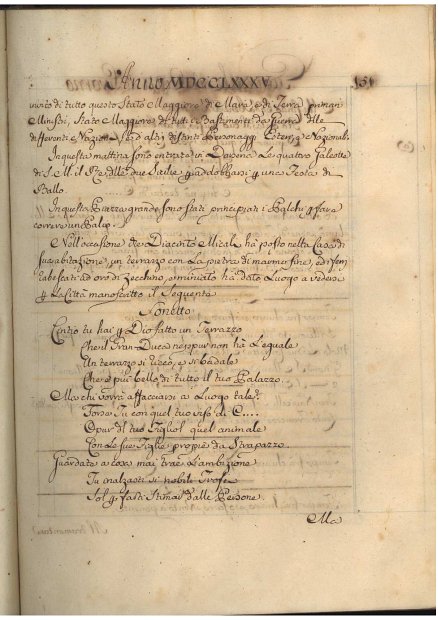 Anno MDCCLXXXV
151
invito di tutto questo Stato Maggiore di Mare, e di Terra, primari
Ministri, Stato Maggiore di tutti i Bastimenti da guerra delle
differenti Nazioni, ed altri distinti Personaggi Esteri, e Nazionali.
In questa mattina sono entrate in Darsena Le quattro Galeotte
di S. M. il Re delle due Sicilie già addobbate p una Festa di
Ballo.
In questa Piazza grande sono stati principiati i Palchi p fare
correre un Palio.
Nell'occasione che Diacinto Micali ha posto nella Casa di
sua abitazione, un terrazzo con La pietra di marmo fine, ed i ferri
rabescati ad oro di Zecchino, o miniato ha dato Luogo a vedersi
p La Città manoscritto il Seguente
Sonetto
Cintio tu hai p Dio fatto un Terrazzo
Che il Gran-Duca neppur non ha L'eguale
Un terrazzo di dico, e si badale
Che è più bello di tutto il tuo Palazzo.
Ma chi vorrà affacciarsi a Luogo tale?
Forse Tu con quel tuo viso di C....
Opur il tuo Figliol quel animale
Con Le sue Figlie proprie da Strapazzo.
Guardate a cosa mai trae L'ambizione
Tu inalzasti sì nobili Trofei
Sol p farti Stimar dalle Persone
Ma